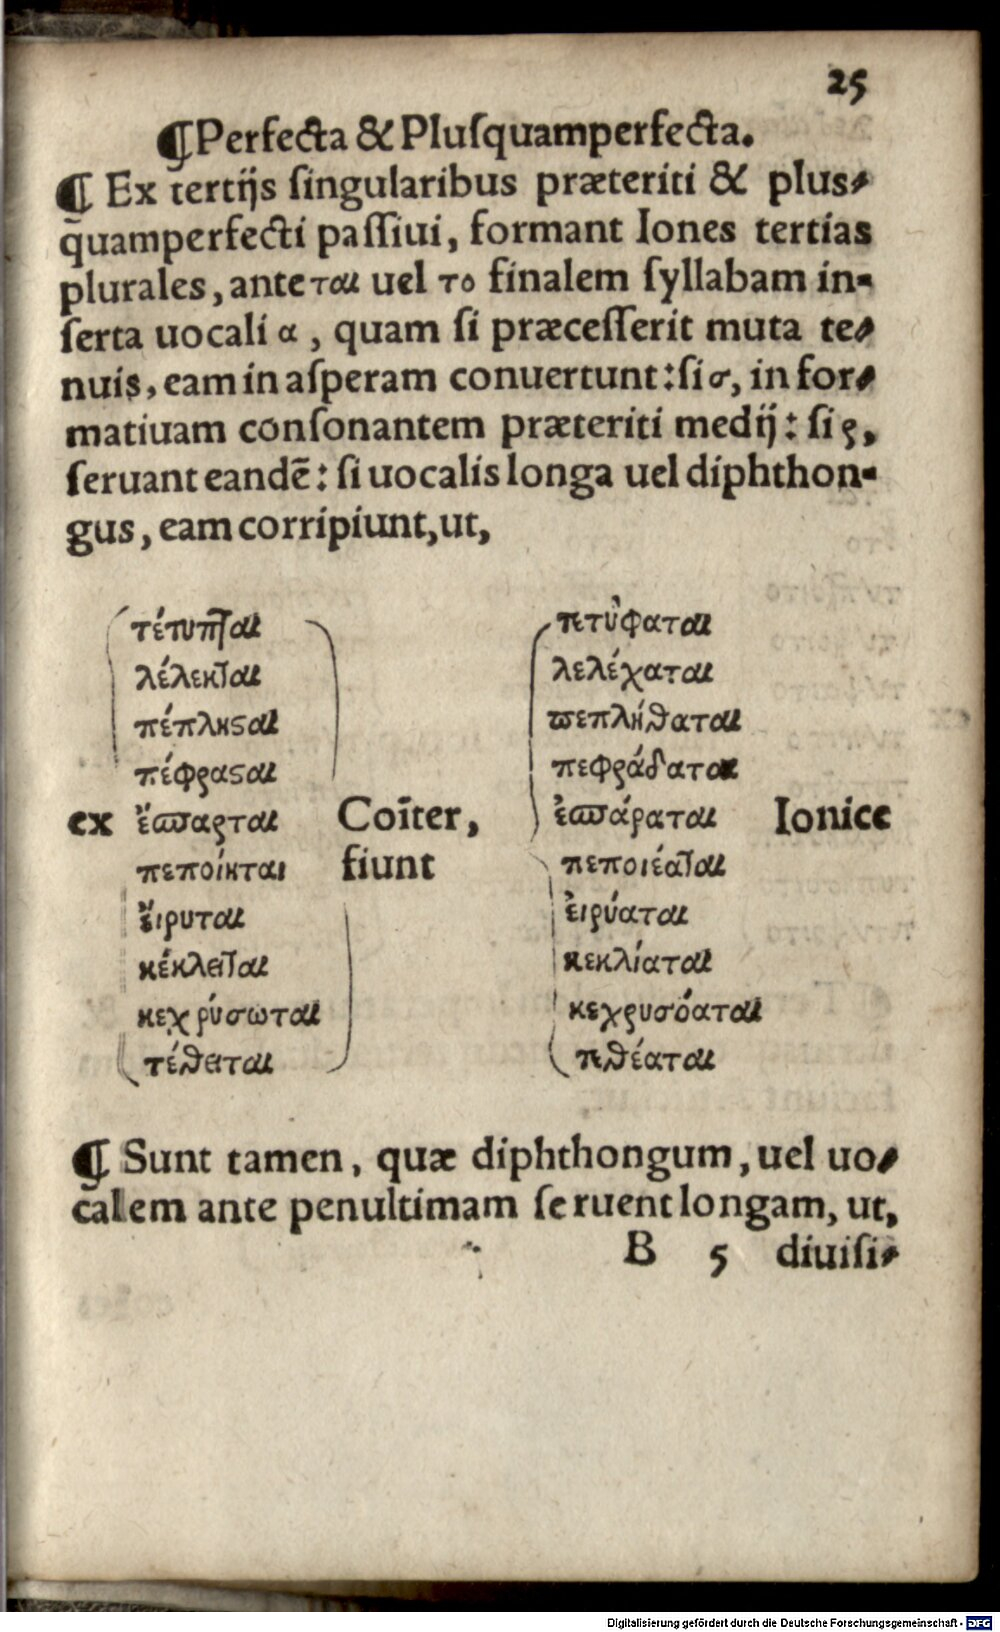 25
¶ Perfecta & Pluſquamperfecta.
¶ Ex tertijs ſingularibus præteriti & plus-
q̄uamperfecti paſſiui, formant Iones tertias
plurales, ante ται uel το finalem ſyllabam in-
ſerta uocali α, quam ſi præceſſerit muta te-
nuis, eam in aſperam conuertunt: ſi σ, in for-
matiuam conſonantem præteriti medij: ſi ρ,
ſeruant eandē: ſi uocalis longa uel diphthon-
gus, eam corripiunt, ut,
τέτυπται τετύφαται
λέλεκται λελέχαται
πέπληςαι πεπλήθαται
πέφραςαι πεφράδαται
ex ἔσπαρται Coīter, ἐσπάραται Ionice
πεποίηται fiunt πεποιέαται
ἔιρυται ἐιρύαται
κέκλειται κεκλίαται
κεχρύσωται κεχρυσόαται
τέθειται τεθέαται
¶ Sunt tamen, quæ diphthongum, uel uo-
calem ante penultimam ſeruent longam, ut,
B 5 diuiſi-
Digitalisierung gefördert durch die Deutsche Forschungsgemeinschaft - DFG